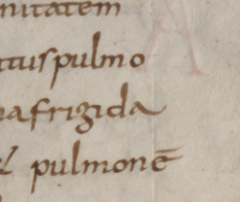 nitatem
tuspulmo
eafrigida
& pulmonē